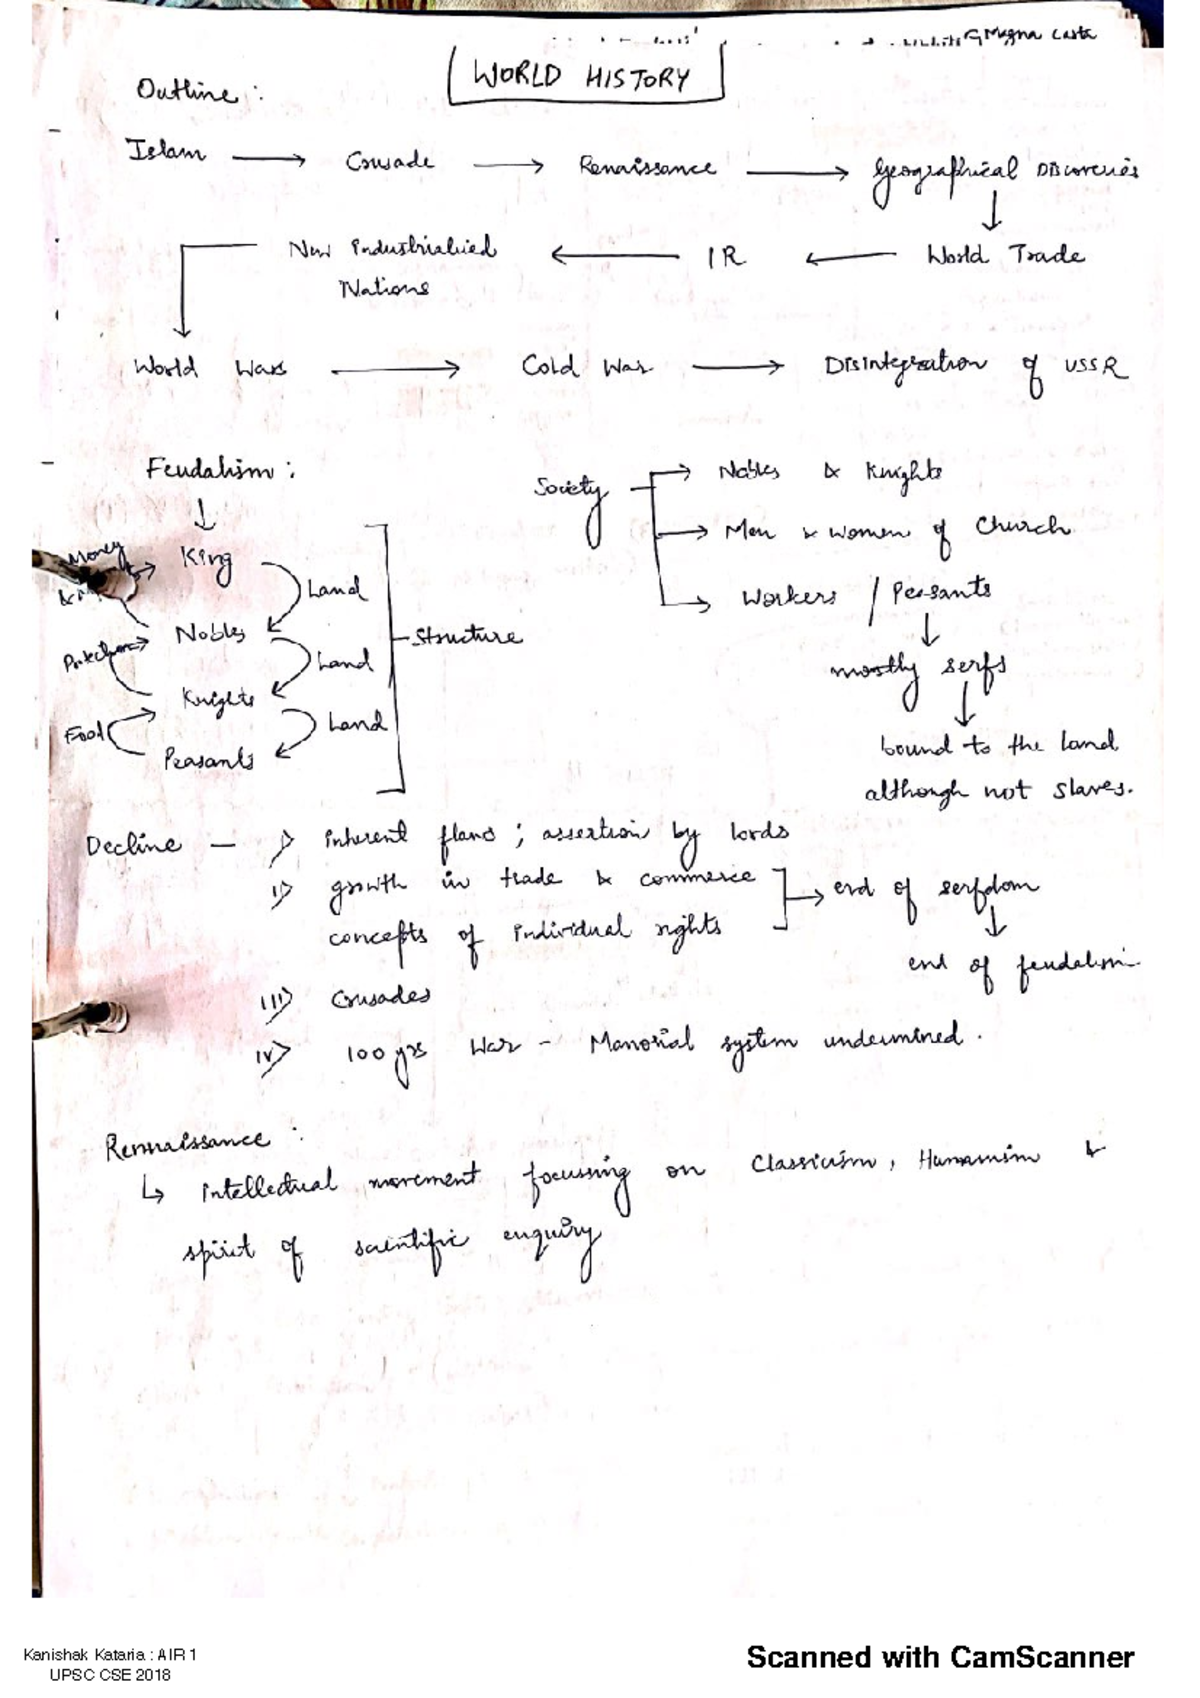 Magna Carta
WORLD HISTORY
Outline :
Islam → Crusade → Renaissance → Geographical Discoveries
↓
World Trade → IR → New Industrialised
Nations
World Wars → Cold War → Disintegration of USSR
Feudalism :
↓
King
Nobles
Knights
Peasants
Land
Land
Land
Money
&
Protection
Food
Structure
Society → Nobles & Knights
→ Men & women of Church
→ Workers / Peasants
↓
mostly serfs
↓
bound to the land
although not slaves.
Decline — i> inherent flaws ; assertion by lords
ii> growth in trade & commerce
concepts of individual rights
→ end of serfdom
↓
end of feudalism
iii> Crusades
iv> 100 yrs War - Manorial system undermined.
Rennaissance :
↳ intellectual movement focussing on Classicism, Humanism &
spirit of scientific enquiry
Kanishak Kataria : AIR 1
UPSC CSE 2018
Scanned with CamScanner